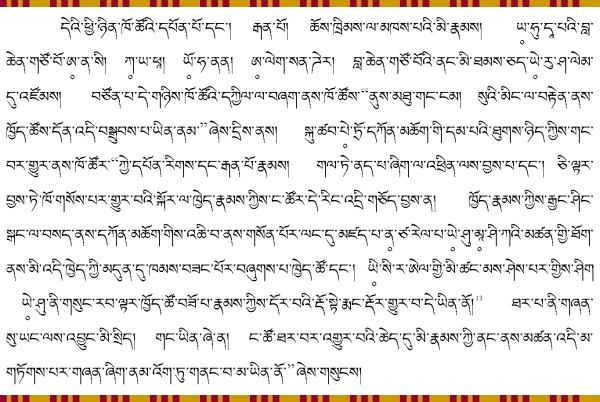 དེའི་ཕྱི་ཉིན་ཁོ་ཚོའི་དཔོན་པོ་དང་། རྒན་པོ། ཆོས་ཁྲིམས་ལ་མཁས་པའི་མི་རྣམས། ཡ༹་ཧུ་དཱ་པའི་བླ་
ཆེན་གཙོ་བོ་ཨ༹་ན་སི། ཀ༹་ཡ་ཕཱ། ཡོ༹་ཧ་ནན། ཨ༹་ལེག་སན་ཌེར། བླ་ཆེན་གཙོ་བོའི་ནང་མི་ཐམས་ཅད་ཡེ༹་རུ་ཤ་ལེམ་
དུ་འཛོམས། བཙོན་པ་དེ་གཉིས་ཁོ་ཚོའི་དཀྱིལ་ལ་བཞག་ནས་ཁོ་ཚོས་“ནུས་མཐུ་གང་ངམ། སུའི་མིང་ལ་བརྟེན་ནས་
ཁྱོད་ཚོས་དོན་འདི་བསྒྲུབས་པ་ཡིན་ནམ་”ཞེས་དྲིས་ནས། སྐུ་ཚབ་པེ༹་ཏྲོ་དཀོན་མཆོག་གི་དམ་པའི་ཐུགས་ཉིད་ཀྱིས་གང་
བར་གྱུར་ནས་ཁོ་ཚོར་“ཀྱེ་དཔོན་རིགས་དང་རྒན་པོ་རྣམས། གལ་ཏེ་ནད་པ་ཞིག་ལ་འཕྲིན་ལས་བྱས་པ་དང་། ཅི་ལྟར་
བྱས་ཏེ་ཁོ་གསོས་པར་གྱུར་བའི་སྐོར་ལ་ཁྱེད་རྣམས་ཀྱིས་ང་ཚོར་དེ་རིང་འདྲི་གཅོད་བྱས་ན། ཁྱོད་རྣམས་ཀྱིས་རྒྱང་ཤིང་
སྒང་ལ་བསད་ནས་དཀོན་མཆོག་གིས་འཆི་བ་ནས་གསོན་པོར་ལང་དུ་མཛད་པ་ན༹་ཙ་རེལ་པ་ཡེ༹་ཤུ་མཱ༹་ཤི་ཀའི་མཚན་གྱི་ཐོག་
ནས་མི་འདི་ཁྱེད་ཀྱི་མདུན་དུ་ཁམས་བཟང་པོར་བཞུགས་པ་ཁྱེད་ཚོ་དང་། ཡི༹་སི་ར་ཨེལ་གྱི་མི་ཚང་མས་ཤེས་པར་གྱིས་ཤིག
ཡེ༹་ཤུ་ནི་གསུང་རབ་ལྟར་ཁྱོད་ཚོ་བཟོ་པ་རྣམས་ཀྱིས་དོར་བའི་རྡོ་སྟེ་རྨང་རྡོར་གྱུར་བ་དེ་ཡིན་ནོ།¹³ ཐར་པ་ནི་གཞན་
སུ་ཡང་ལས་འབྱུང་མི་སྲིད། གང་ཡིན་ཞེ་ན། ང་ཚོ་ཐར་བར་འགྱུར་བའི་ཆེད་དུ་མི་རྣམས་ཀྱི་ནང་ནས་མཚན་འདི་མ་
གཏོགས་པར་གཞན་ཞིག་ནམ་འོག་ཏུ་གནང་བ་མ་ཡིན་ནོ་”ཞེས་གསུངས།